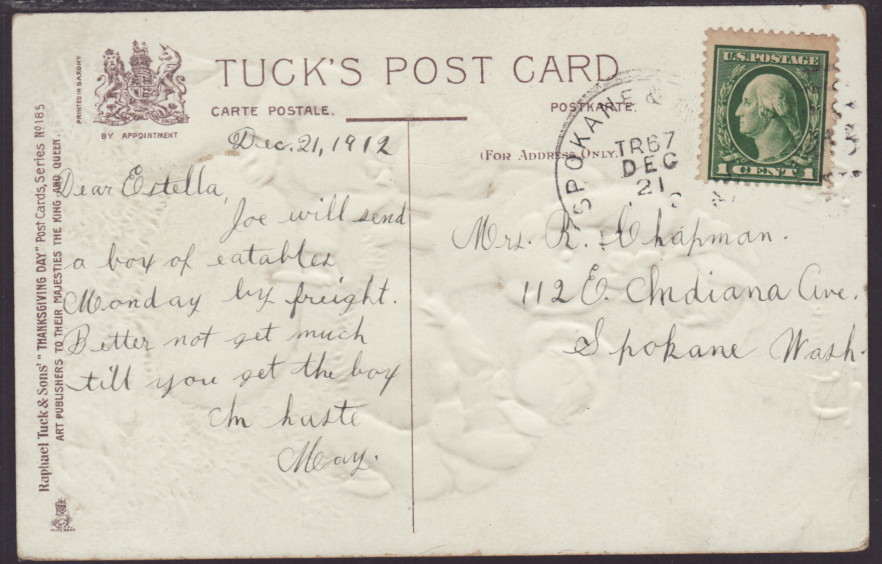 TUCK'S POST CARD
CARTE POSTALE.
POSTKARTE.
(FOR ADDRESS ONLY.)
BY APPOINTMENT
PRINTED IN SAXONY
Raphael Tuck & Sons' "THANKSGIVING DAY" Post Cards, Series No 185
ART PUBLISHERS TO THEIR MAJESTIES THE KING AND QUEEN.
U.S. POSTAGE
1 CENT 1
SPOKANE &
TR67
DEC
21
Dec. 21, 1912
Dear Estella,
Joe will send
a box of eatables
Monday by freight.
Better not get much
till you get the box
In haste
May.
Mrs. R. Chapman.
112 E. Indiana Ave.
Spokane Wash.